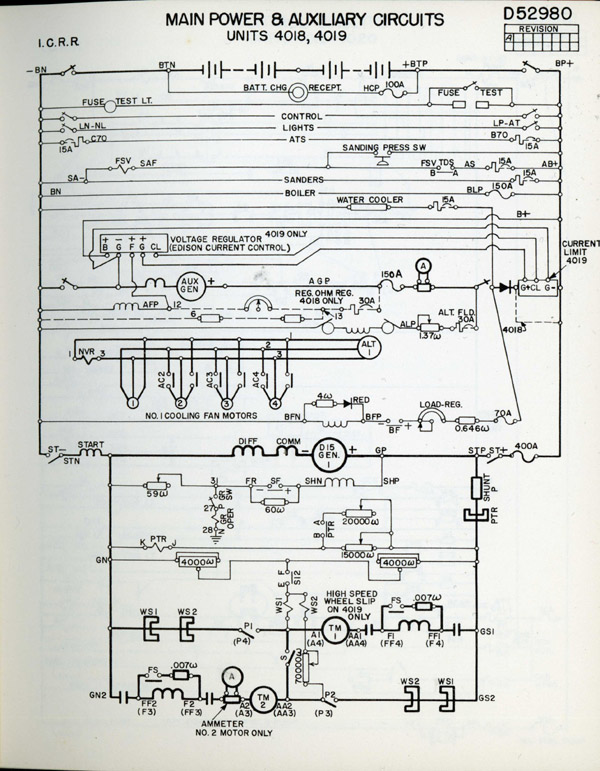 D52980
REVISION
A
MAIN POWER & AUXILIARY CIRCUITS
UNITS 4018, 4019
I.C.R.R.
-BN
BTN
+BTP
BP+
BATT. CHG RECEPT.
HCP 100A
FUSE TEST
FUSE TEST LT.
CONTROL
LN-NL
LIGHTS
LP-AT
15A
C70
ATS
B70
15A
SANDING PRESS SW
FSV
SAF
FSV TDS
B A
AS
15A
AB+
SA-
SANDERS
15A
BN
BOILER
BLP
150A
WATER COOLER
15A
B+
+ - + +
B G F G CL
4019 ONLY
VOLTAGE REGULATOR
(EDISON CURRENT CONTROL)
CURRENT
LIMIT
4019
G+CL G-
AUX
GEN
+
AGP
150A
A
REG. OHM REG.
4018 ONLY
30A
AFP
12
13
6
4018
ALP
1.37ω
ALT. FLD.
30A
1
NVR
3
1
2
3
ALT
1
AC2
AC3
AC4
1
2
3
4
NO. 1 COOLING FAN MOTORS
4ω
RED
BFN
BFP
-
BF
+
LOAD-REG.
0.646ω
70A
ST-
STN
START
DIFF
COMM
-
D15
GEN.
1
+
GP
STP
ST+
400A
59ω
31
GR
SW
27
GR
OPER
P
N
28
FR
SF
- +
60ω
SHN
SHP
SHUNT
P
PTR
20000ω
A
B
PTR
15000ω
K
PTR
J
GN
4000ω
4000ω
F
E
S12
WS1
WS2
HIGH SPEED
WHEEL SLIP
ON 4019
ONLY
FS
.007ω
WS1
WS2
P1
(P4)
A1
(A4)
TM
1
AA1
(AA4)
F1
(F4)
FF1
(FF4)
GS1
S
70000ω
GN2
FS
.007ω
FF2
(F3)
F2
(FF3)
A
A2
(A3)
TM
2
AA2
(AA3)
P2
(P3)
WS2
WS1
GS2
AMMETER
NO. 2 MOTOR ONLY